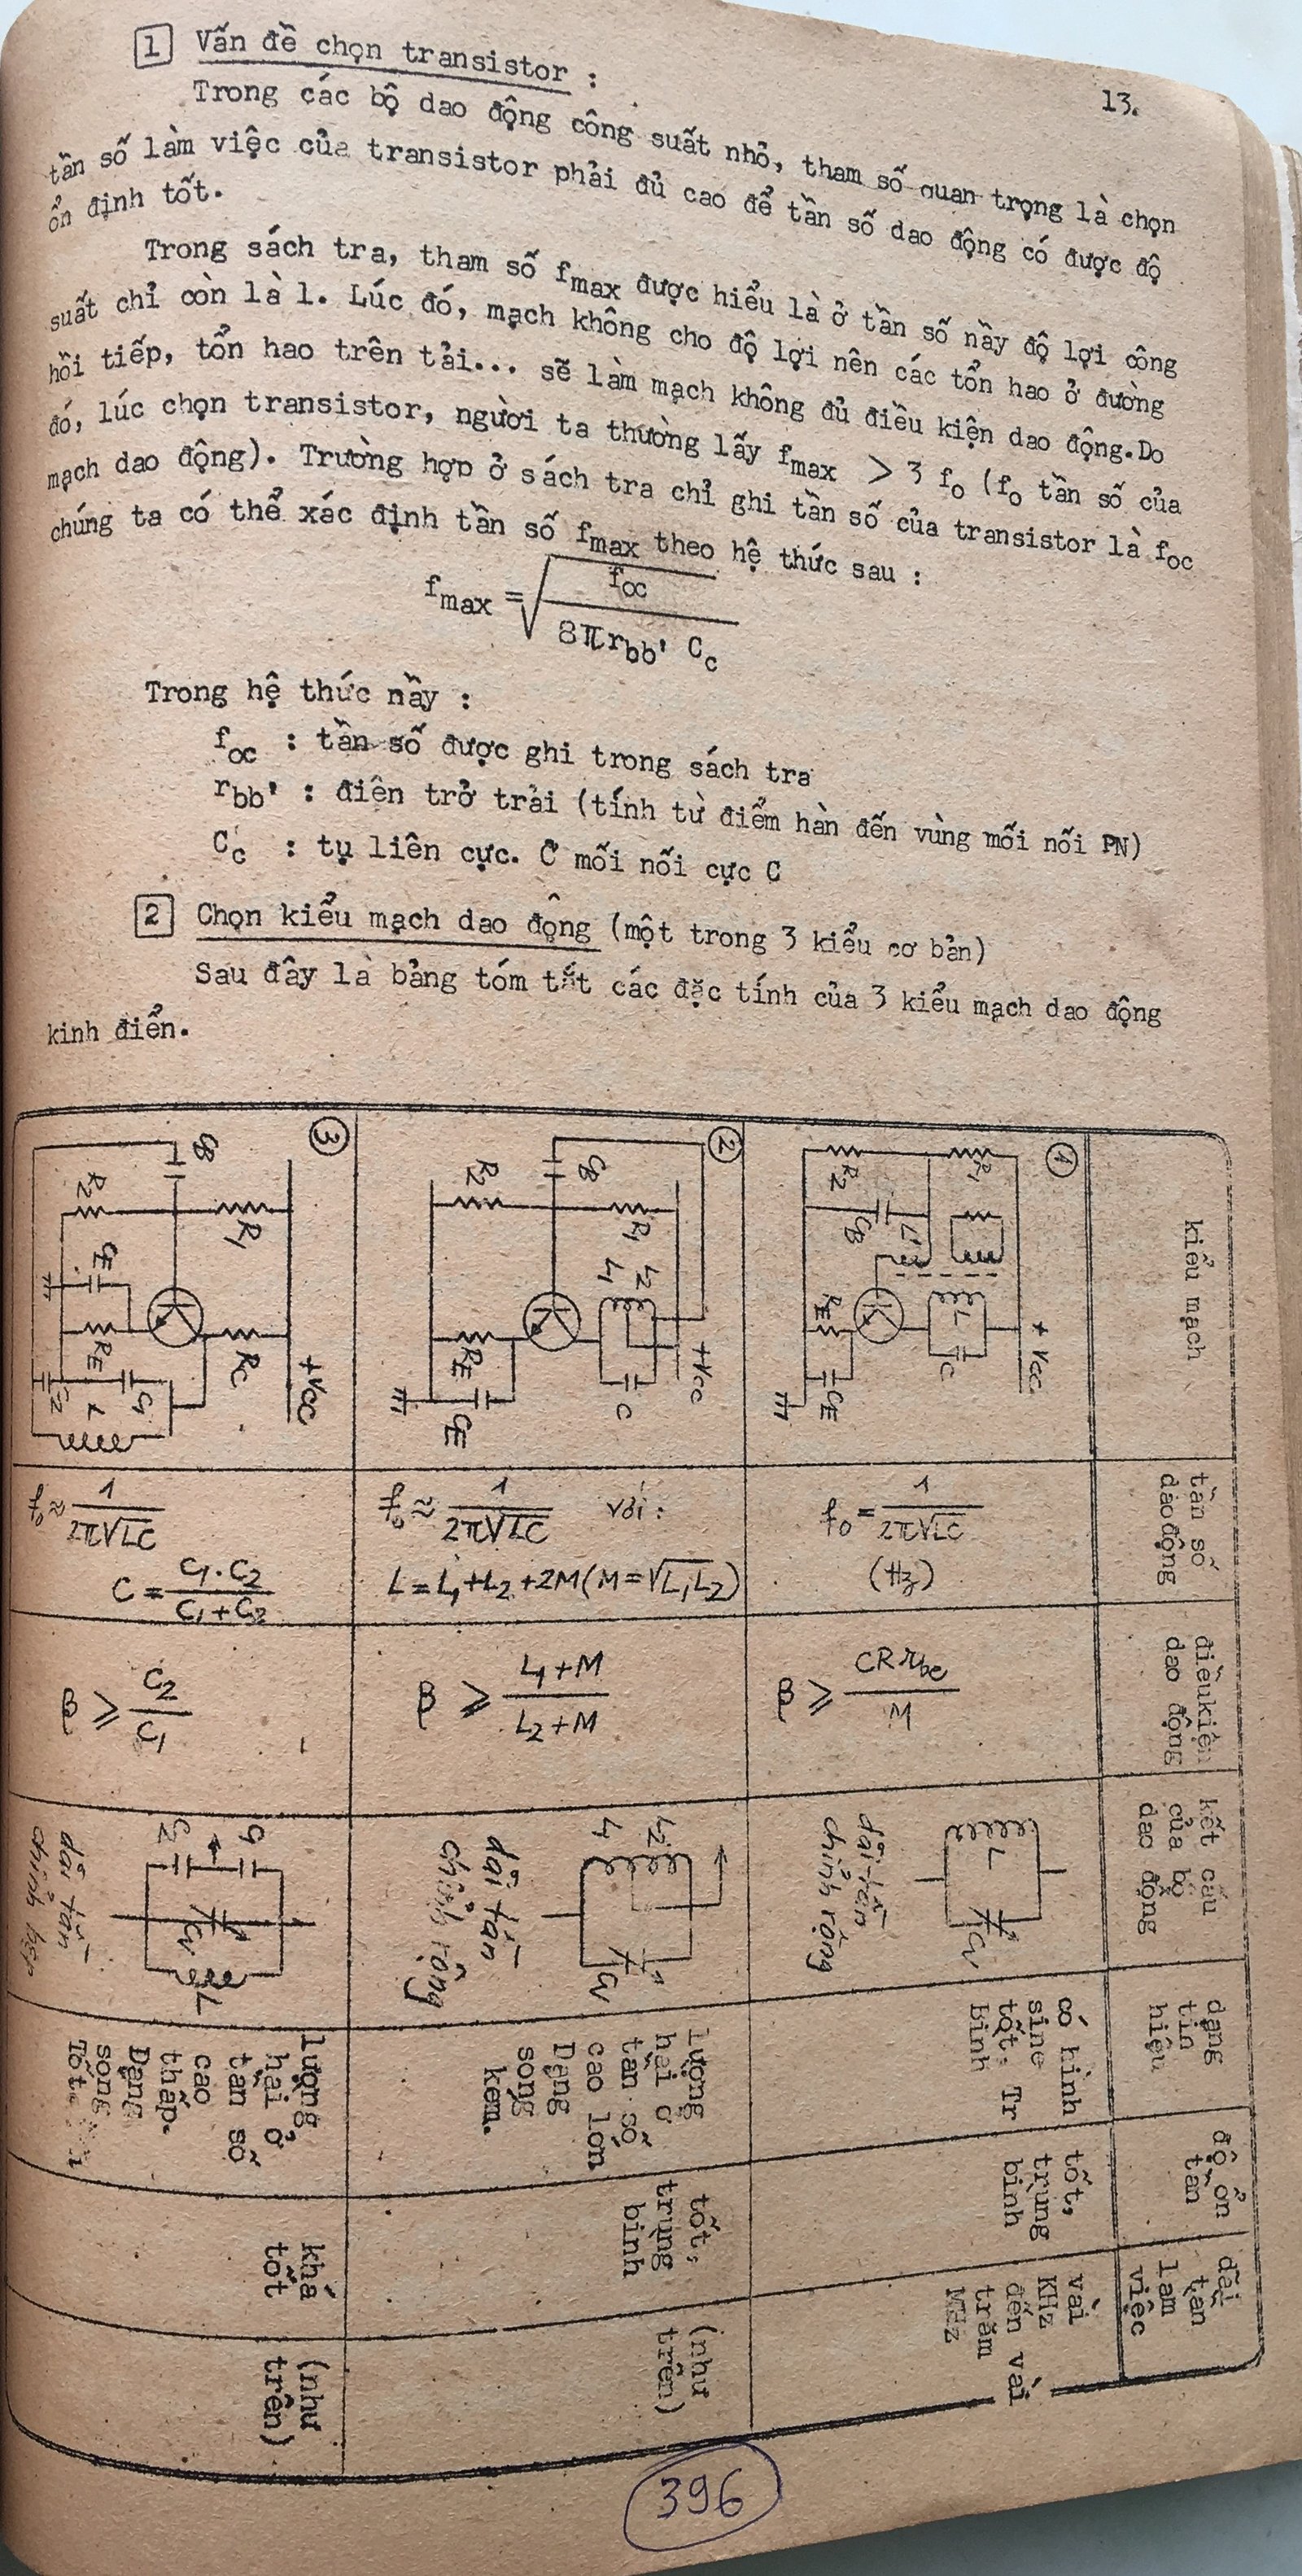 13.
1 Vấn đề chọn transistor :
Trong các bộ dao động công suất nhỏ, tham số quan trọng là chọn
tần số làm việc của transistor phải đủ cao để tần số dao động có được độ
ổn định tốt.
Trong sách tra, tham số fmax được hiểu là ở tần số nầy độ lợi công
suất chỉ còn là 1. Lúc đó, mạch không cho độ lợi nên các tổn hao ở đường
hồi tiếp, tổn hao trên tải... sẽ làm mạch không đủ điều kiện dao động.Do
đó, lúc chọn transistor, người ta thường lấy fmax > 3 fo (fo tần số của
mạch dao động). Trường hợp ở sách tra chỉ ghi tần số của transistor là foc
chúng ta có thể xác định tần số fmax theo hệ thức sau :
fmax = √(foc / 8πrbb' Cc)
Trong hệ thức nầy :
foc : tần số được ghi trong sách tra
rbb' : điện trở trải (tính từ điểm hàn đến vùng mối nối PN)
Cc : tụ liên cực. C mối nối cực C
2 Chọn kiểu mạch dao động (một trong 3 kiểu cơ bản)
Sau đây là bảng tóm tắt các đặc tính của 3 kiểu mạch dao động
kinh điển.
kiểu mạch
tần số
dao động
điều kiện
dao động
kết cấu
của bộ
dao động
dạng
tín
hiệu
độ ổn
tần
dãi
tần
làm
việc
1
R1
R2
CB
L'
L
C
RE
CE
+ Vcc
fo = 1/2π√LC
(Hz)
β ⩾ CRrbe/M
L
Cv
dãi tần
chỉnh rộng
có hình
sine
tốt. Tr
bình
tốt,
trung
bình
vài
KHz
đến vài
trăm
MHz
2
CB
R1
R2
L1
L2
C
RE
CE
+Vcc
fo ≈ 1/2π√LC với:
L = L1+L2+2M (M=√L1L2)
β ⩾ L1+M/L2+M
L2
L1
Cv
dãi tần
chỉnh rộng
lượng
hại ở
tần số
cao lớn
Dạng
sóng
kém.
tốt,
trung
bình
(như
trên)
3
CB
R1
R2
CE
RE
RC
C1
C2
L
+Vcc
fo ≈ 1/2π√LC
C = C1.C2/C1+C2
β ⩾ C2/C1
C1
C2
Cv
L
dãi tần
chỉnh hẹp
lượng
hại ở
tần số
cao
thấp.
Dạng
sóng
Tốt.
khá
tốt
(như
trên)
396